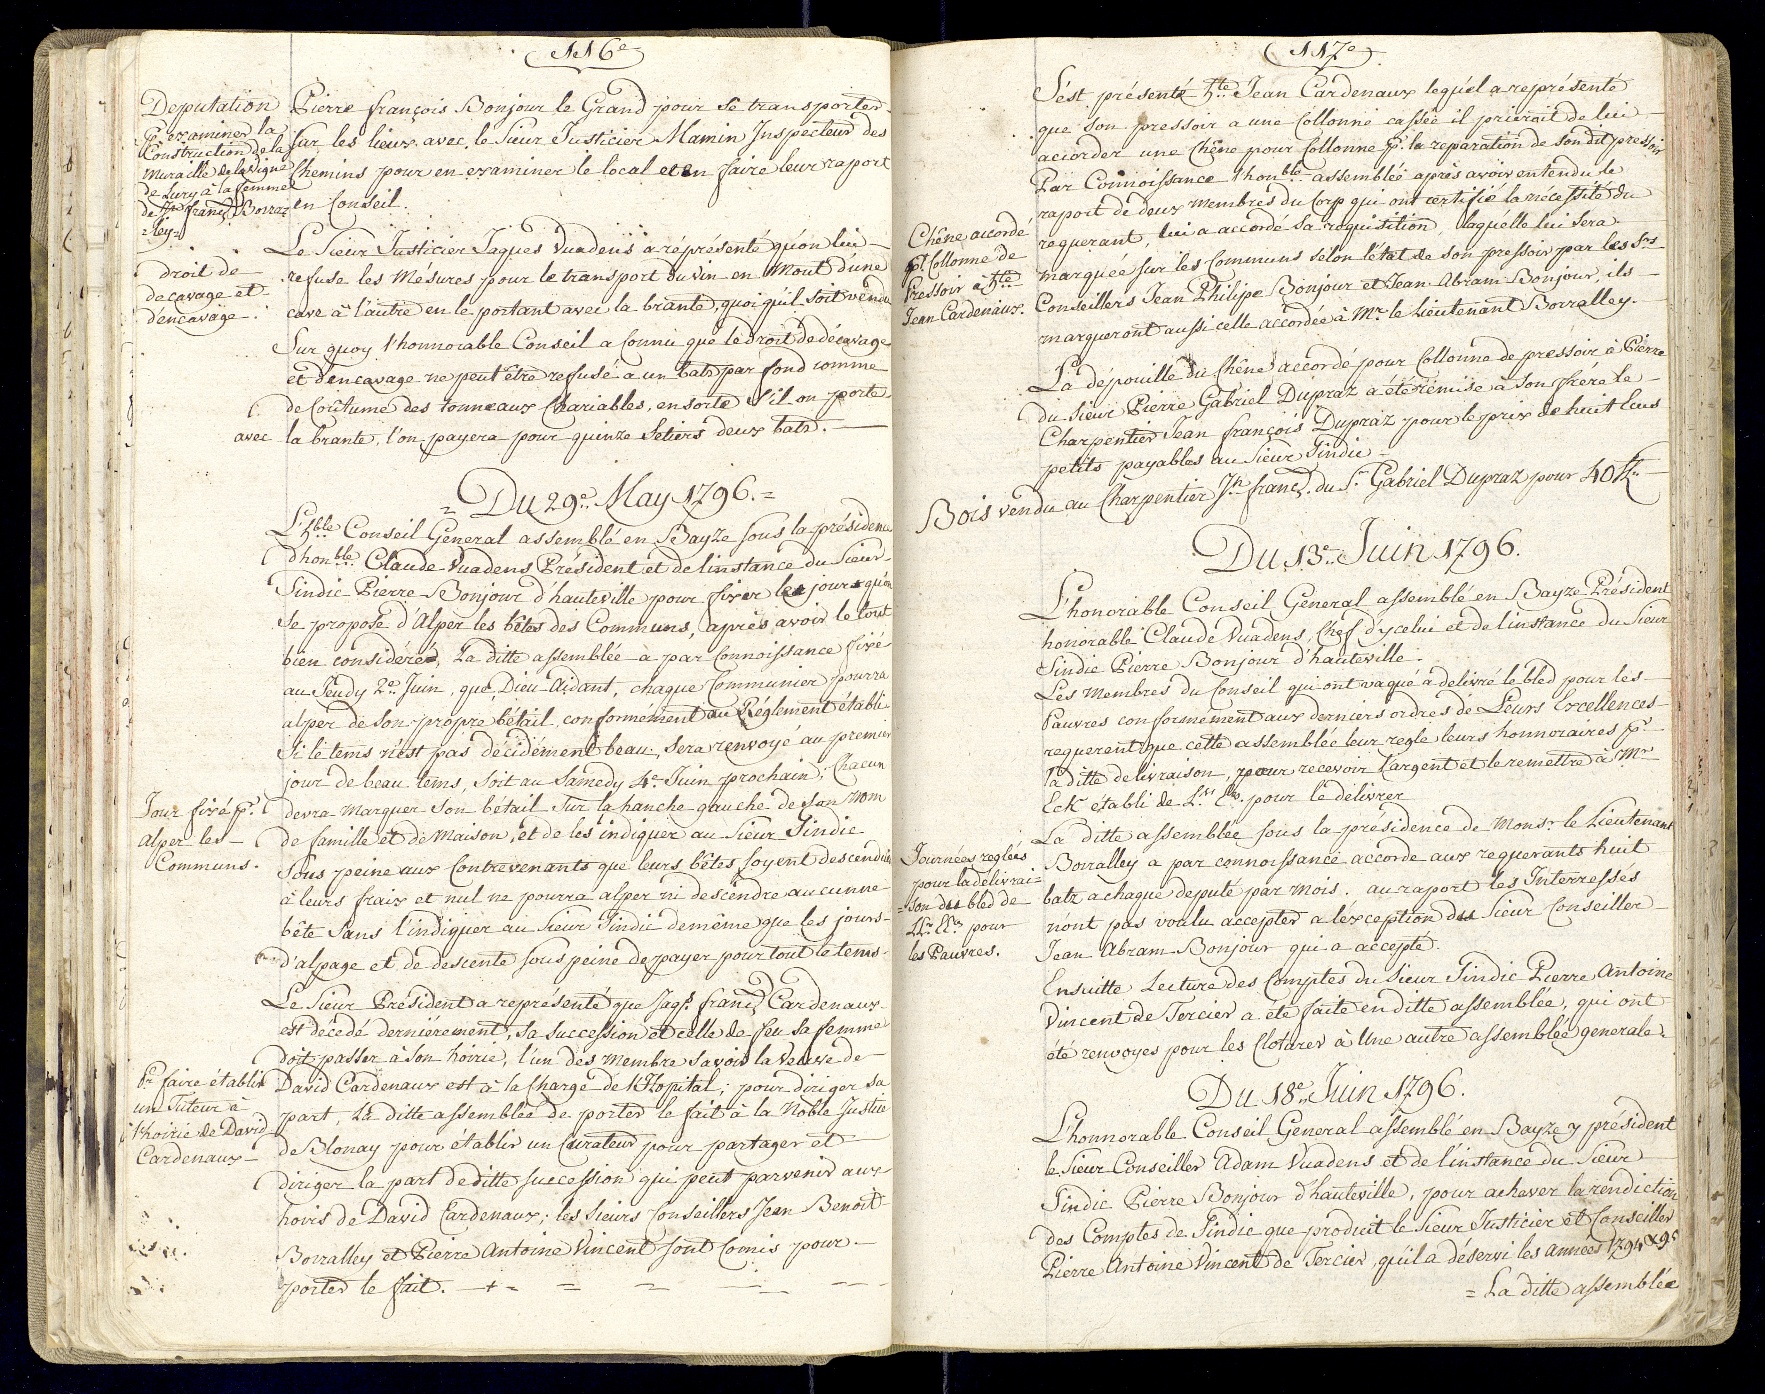 116e
Deputation
Pr examiner la
Construction de la
Muraille de la Vigne
de Lury à la femme
de Jn franç. Borral-
=ley=
Pierre françois Bonjour le Grand pour se transporter
sur les lieux avec le Sieur Justicier Mamin Inspecteur des
Chemins pour en examiner le local et en faire leur raport
en Conseil.
droit de
decavage et
d'encavage.
Le Sieur Justicier Jaques Vuadens a représenté qu'on lui
refuse les Mésures pour le transport du vin en Mout d'une
cave à l'autre en le portant avec la brante, quoi qu'il soit vendu
Sur quoy l'honnorable Conseil a Connu que le droit de décavage
et d'encavage ne peut être refusé a un batz par fond comme
de Coûtume des tonneaux Chariables, ensorte s'il on porte
avec la brante, l'on payera pour quinze Setiers deux batz.
= Du 29e May 1796. =
L'hble Conseil Géneral assemblé en Bayze sous la présidence
d'honble Claude Vuadens Président et de linstance du Sieur
Sindic Pierre Bonjour d'hauteville pour fixer les jours qu'on
se propose d'Alper les bêtes des Communs, après avoir le tout
bien considéré, La ditte assemblée a par Connoissance fixé
au Jeudy 2e Juin, que, Dieu Aidant, chaque Communier pourra
alper de son propre bétail conformément au Réglement établi
Si le tems n'est pas décidément beau, sera renvoyé au premier
jour de beau tems, soit au Samedy 4e Juin prochain; Chacun
Jour fixé pr
alper les
Communs.
devra Marquer son bétail sur la hanche gauche de son Nom
de famille et de Maison, et de les indiquer au Sieur Sindic
Sous peine aux Contrevenants que leurs bêtes soyent descendües
à leurs fraix et nul ne pourra alper ni descendre aucunne
bête Sans l'indiquer au Sieur Sindic demême que les jours
d'alpage et de descente sous peine de payer pour tout le tems.
Le Sieur Président a représenté que Jaqs franç. Cardenaux
est décedé derniérement, sa succession et celle de feu sa femme
doit passer à son hoirie, l'un des membre savoir la Veuve de
Pr faire établir
un Tuteur à
l'hoirie de David
Cardenaux
David Cardenaux est à la Charge de l'Hopital; pour diriger sa
part, La ditte assemblée de porter le fait à la Noble Justice
de Blonay pour établir un Curateur pour partager et
diriger la part de ditte succession qui peut parvenir aux
hoirs de David Cardenaux; les Sieurs Conseillers Jean Benoit
Borralley et Pierre Antoine Vincent sont Comis pour
porter le fait.
117e
S'est présenté hte Jean Cardenaux lequel a représenté
que son pressoir a une Collonne cassée il prieroit de lui
accorder une Chêne pour Collonne pr la reparation de son dit pressoir
Chêne accordé
pr Collonne de
Pressoir à hte
Jean Cardenaux.
Par Connoissance l'honble assemblé après avoir entendu le
raport de deux Membres du Corp qui ont certifié la nécessité du
requerant, lui a accordé sa requisition, laquelle lui sera
marquée sur les Communs selon l'état de son pressoir par les Srs
Conseillers Jean Philipe Bonjour et Jean Abram Bonjour, ils
marqueront aussi celle accordée à Mr le Lieutenant Borralley.
La dépouille du Chêne accordé pour Collonne de pressoir à Pierre
du Sieur Pierre Gabriel Dupraz a été remise à son frére le
Charpentier Jean françois Dupraz pour le prix de huit Ecus
petits payables au Sieur Sindic
Bois vendu au Charpentier Jn franç. du Sr Gabriel Dupraz pour 40
Du 13e Juin 1796.
L'honorable Conseil General assemblé en Bayze Président
honorable Claude Vuadens, Chef d'ycelui et de l'instance du Sieur
Sindic Pierre Bonjour d'hauteville.
Les Membres du Conseil qui ont vaqué à delivré le bled pour les
Pauvres conformement aux derniers ordres de Leurs Excellences
requerent que cette assemblée leur regle leurs honnoraires pr
la ditte delivraison, pour recevoir l'argent et le remettre à Mr
Eck établi de LL. EE. pour le délivrer
Journées reglées
pour la délivrai=
=son du bled de
LL. EE. pour
les Pauvres.
La ditte assemblée sous la présidence de Monsr le Lieutenant
Borralley a par connoissance accorde aux requerants huit
batz a chaque deputé par Mois. au raport les Interresses
n'ont pas voulu accepter a léxception du Sieur Conseiller
Jean Abram Bonjour qui a accepté.
Ensuitte Lecture des Comptes du Sieur Sindic Pierre Antoine
Vincent de Tercier a été faite en ditte assemblée, qui ont
été renvoyes pour les Cloturer à Une autre assemblée generale.
Du 18e Juin 1796.
L'honnorable Conseil General assemblé en Bayze y président
le Sieur Conseiller Adam Vuadens et de l'instance du Sieur
Sindic Pierre Bonjour d'hauteville, pour achaver la rendiction
des Comptes de Sindic que produit le Sieur Justicier et Conseiller
Pierre Antoine Vincent de Tercier, qu'il a déservi les années 1794 & 95
= La ditte assemblée